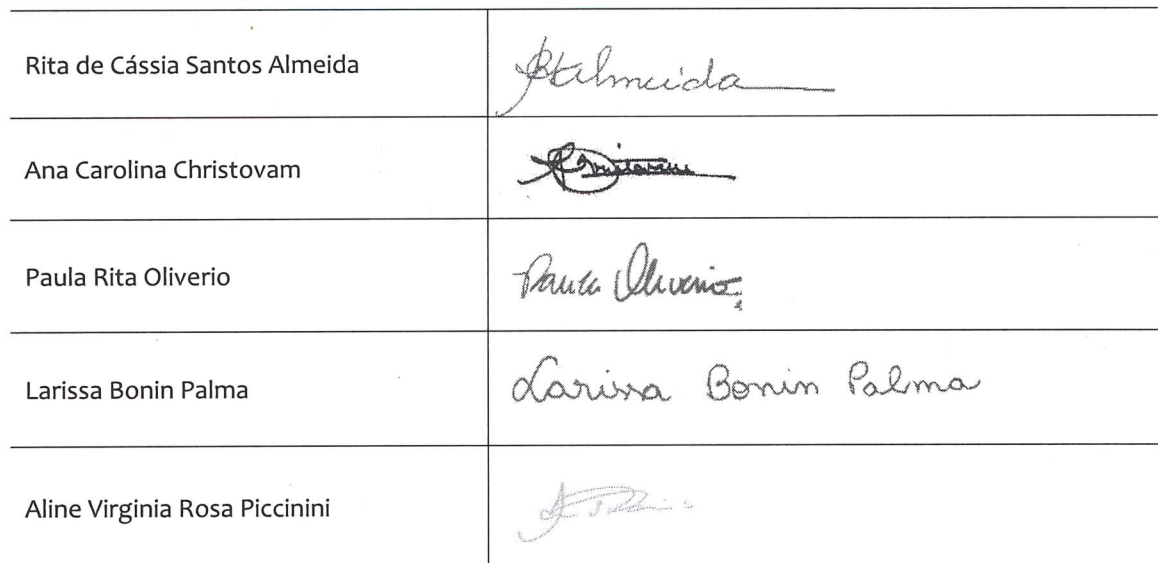 Rita de Cássia Santos Almeida
Almeida
Ana Carolina Christovam
Paula Rita Oliverio
Paula Oliverio
Larissa Bonin Palma
Larissa Bonin Palma
Aline Virginia Rosa Piccinini